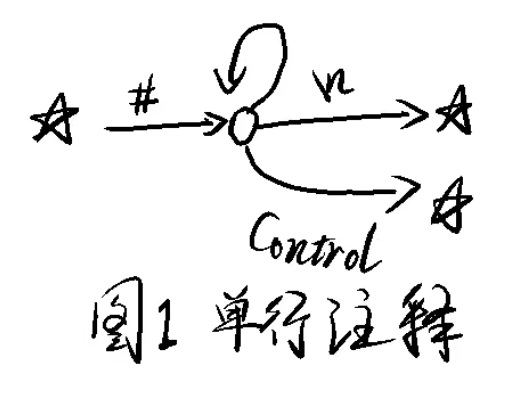 # \n
Control
图1 单行注释